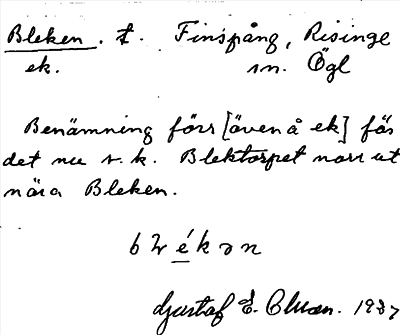 Bleken. t. Finspång, Risinge
ek. sn. Ögl
Benämning förr [även å ek] fös
det nu s. k. Blektorpet norr ut
nära Bleken.
blékən
Gustaf E. 1937